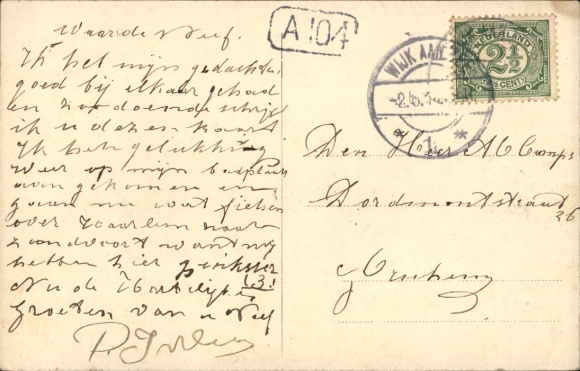 Waarde Neef.
Ik heb mijn gedachten
goed bij elkaar gehad
en zoo doende schrijf
ik u dezen kaart
Ik ben gelukkig
weer op mijn
aan gekomen en
gaan nu wat fietsen
over Haarlem naar
Zandvoort want wij
hebben hier
Nu de Hartelijke
Groeten van u Neef
P.
A 104
WIJK AAN
1
NEDERLAND
2½
CENT
Den Heer A C
Dordmontstraat
26
Arnhem